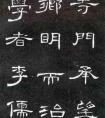 門承望
鄉明而治
學者李儒